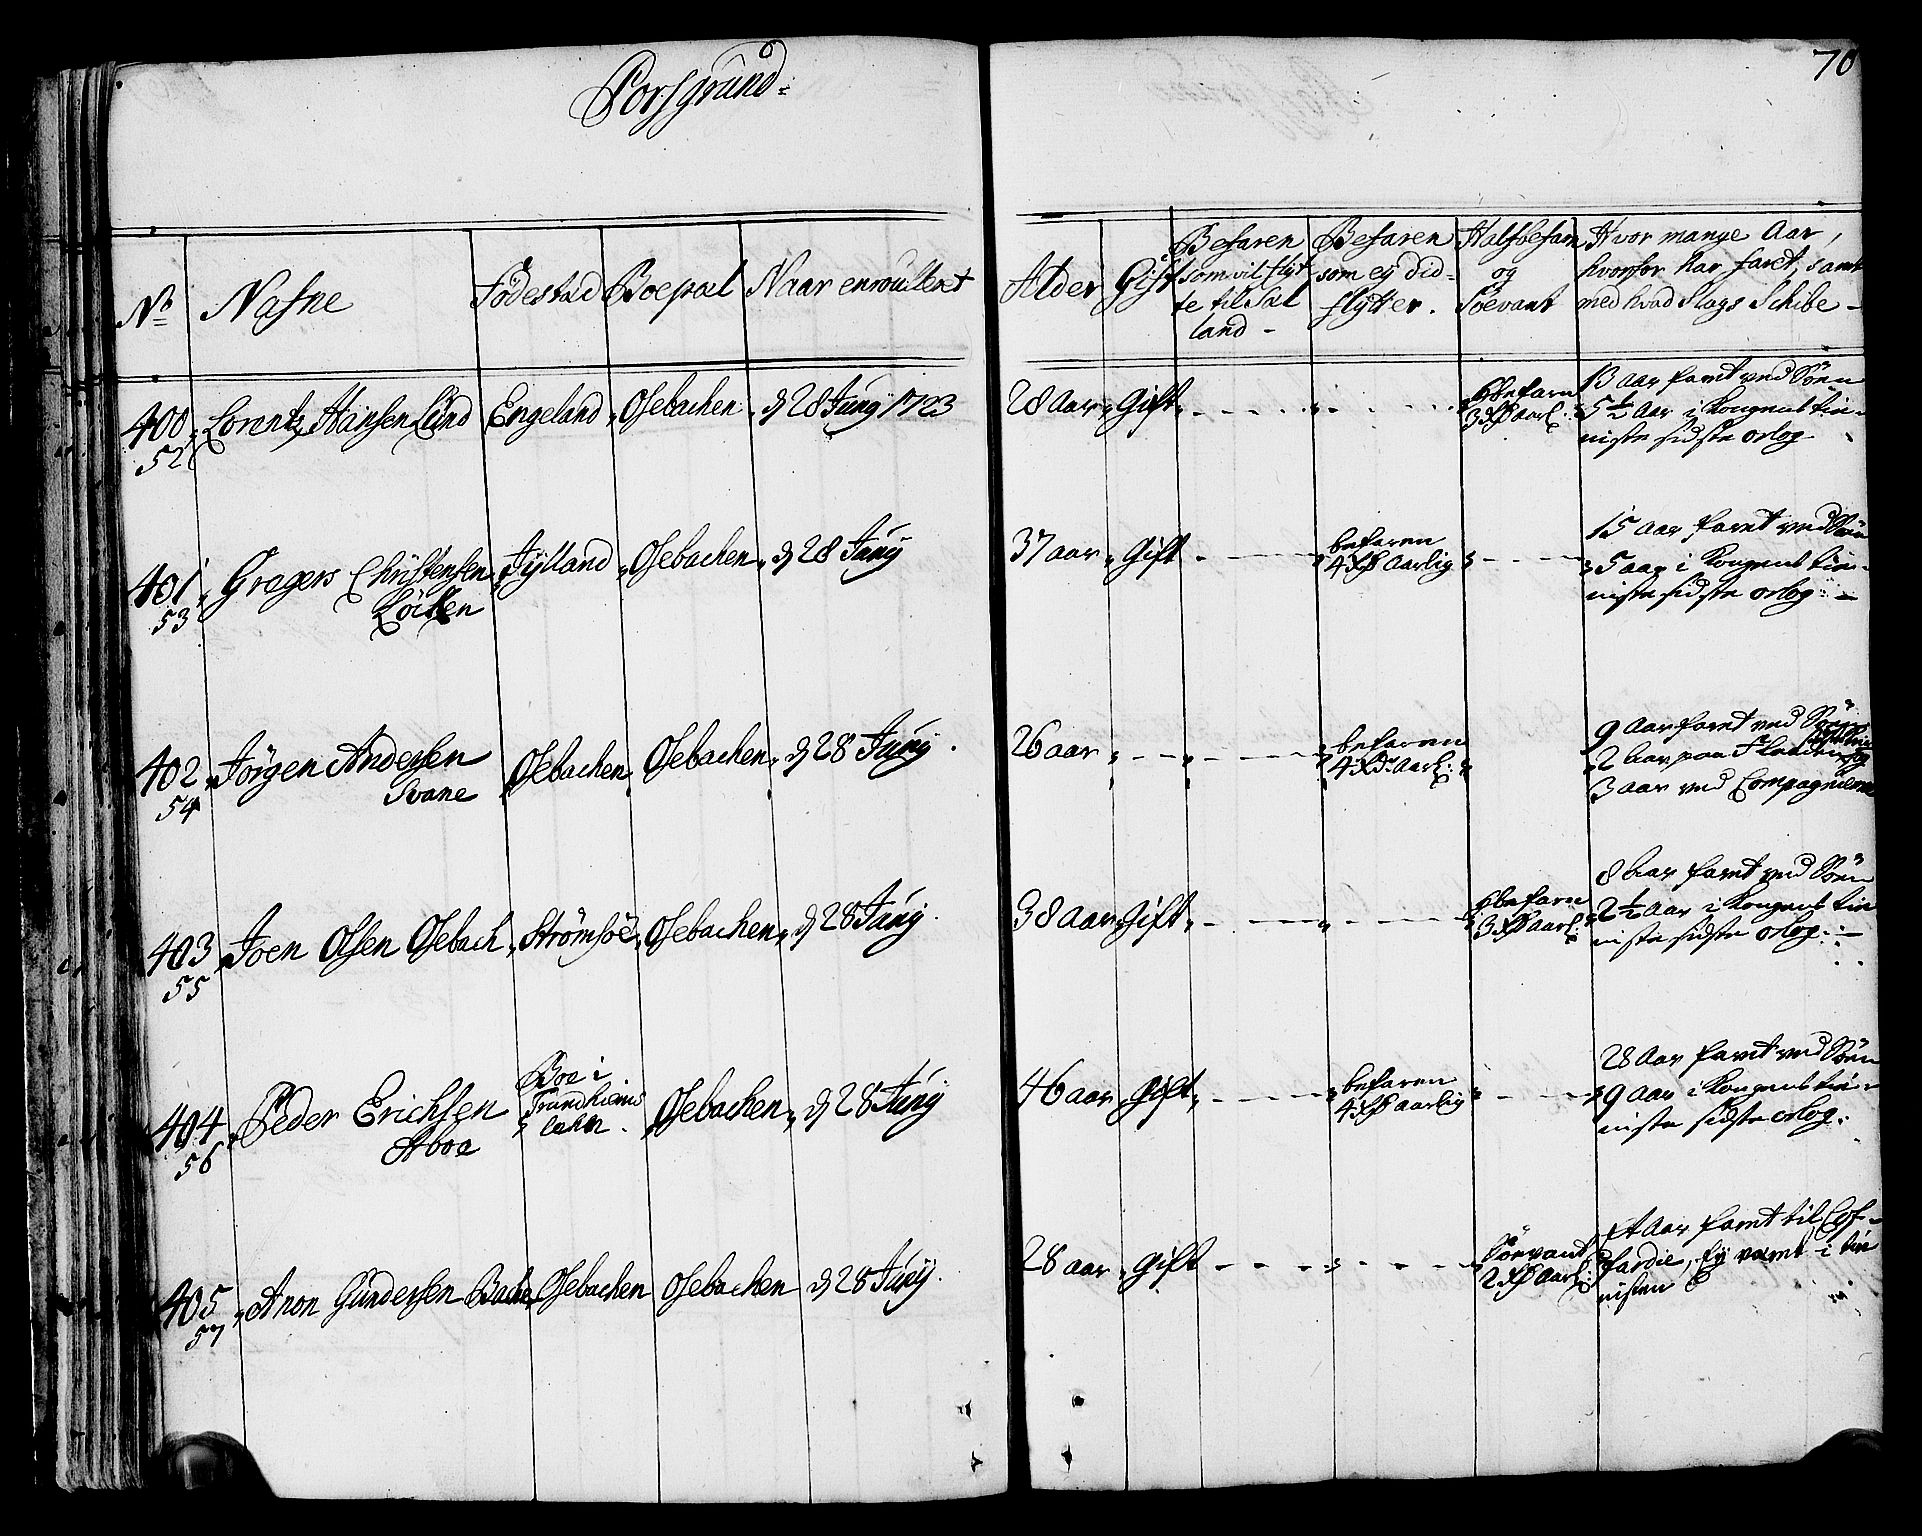 Porsgrund
70
No Nafne Födestæd Boepæl Naar enroullert Alder Gift
Befaren
som vil flyt
te til Sæl
land
Befaren
som ey did
flytter.
Halfbefarn
og
Söevant
Hvor mange Aar,
hvorfor har faret, samt
med hvad Slags Schibe
400 Lorentz Hansen Lund Engeland Osebachen d 28 Junij 1723 28 Aar Gift
52
befarn
3 Aarl:
13 aar faret ved Söen
5½ Aar i Kongens tie-
niste sidste orlog
401 Gregers Christensen Jylland Osebachen d 28 Junij 37 aar Gift
53
befaren
4 Aarlig
15 aar faret ved Söen
5 aar i Kongens tie-
niste sidste orlog
402 Jörgen Andersen Osebachen Osebachen d 28 Junij 26 aar
Svane
54
befaren
4 Aarl:
9 Aar faret ved Söen
2 Aar paa
3 aar ved Compagnierne
403 Joen Olsen Osebach Strömsöe Osebachen d 28 Junij 38 aar Gift
55
befarn
3 aarl:
8 Aar faret ved Söen
2½ Aar i Kongens tie
niste sidste orlog
404 Peder Erichsen
Aboe
56
Boe i
Trundhiems
Osebachen d 28 Junij 46 aar Gift
befaren
4 aarlig
28 Aar faret ved Söen
9 aar i Kongens tie-
niste sidste orlog.
405 Aron Gundersen Bache Osebachen Osebachen d 28 Junij. 28 aar Gift
57
Söevant
2 Aarl:
Et Aar faret til Cof-
fardie, Ey været i tie
nisten